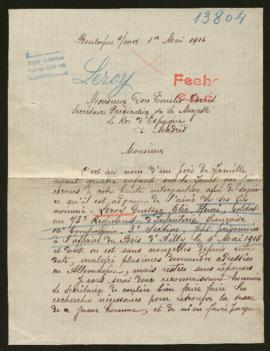 13804
Boulogne s/mer 1er Mai 1916
Leroy
Fecha
Monsieur Don Emilio
Secrétaire Particulier de Sa Majesté
Le Roi d'Espagne
à Madrid
Monsieur
C'est au nom d'un père de famille
ayant quatre enfants sur le
à votre haute intervention afin de savoir
ce qu'il est advenu de l'aîné de ses fils
nommé : Leroy Gustave Elie Henri, soldat
au 73e Régiment d'Infanterie française
10e Compagnie, 3e Section, fait prisonnier
à l'affaire du Bois d'Ailly le 5 Mai 1915
et dont on est sans nouvelles depuis cette
date, malgré plusieurs demandes adressées
en Allemagne, mais restées sans réponses.
Je vous serai donc reconnaissant Monsieur
le Secrétaire de vouloir bien faire faire les
recherches nécessaires pour retrouver la trace
de ce jeune homme, et de me faire